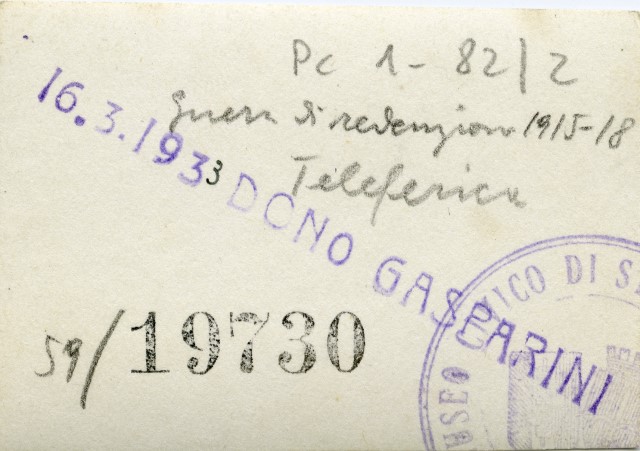 Pc 1 - 82/2
Guerra di redenzione 1915-18
Teleferica
16.3.1933 DONO GASPARINI
59/19730
USEO
ICO DI S